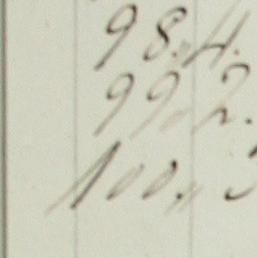 98„4.
99„2.
100„